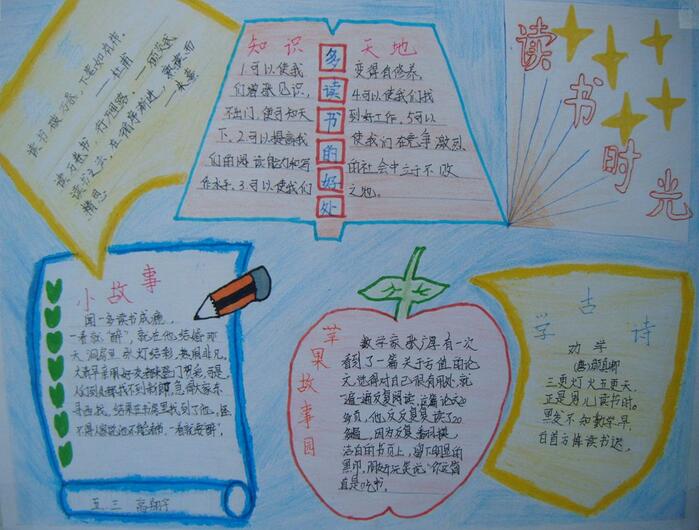 读书破万卷，下笔如有神。
——杜甫
读万卷书，行万里路。——顾炎武
读书之法，在循序渐进，熟读而
精思。——朱熹
知识天地
多读书的好处
1.可以使我
们增长见识，
不出门，便可知天
下。2.可以提高我
们的阅读能力和写
作水平。3.可以使我们
变得有修养。
4.可以使我们找
到好工作。5.可以
使我们在竞争激烈
的社会中立于不败
之地。
读书时光
小故事
闻一多读书成瘾，
一看就"醉"，就在他结婚那
天，洞房里张灯结彩，热闹非凡。
大清早亲朋好友都来登门贺喜，
都找不到新郎，急得大家东
寻西找，结果在书房里找到了他。
一看就要醉。
五三 高翔宇
苹果故事园
数学家张广厚有一次
看到了一篇关于亏值的论
文，觉得对自己很有用处，就
一遍又一遍反复阅读。这篇论文20
多页，他反反复复读了
因为反复
洁白的书页上，留下明显的
黑印，
直是吃书。
学古诗
劝学
(唐)颜真卿
三更灯火五更天，
正是男儿读书时。
黑发不知勤学早，
白首方悔读书迟。